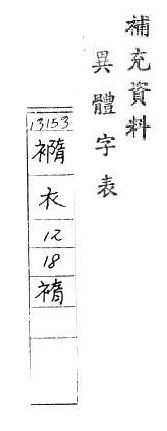 補充資料
異體字表
13153
衣
12
18